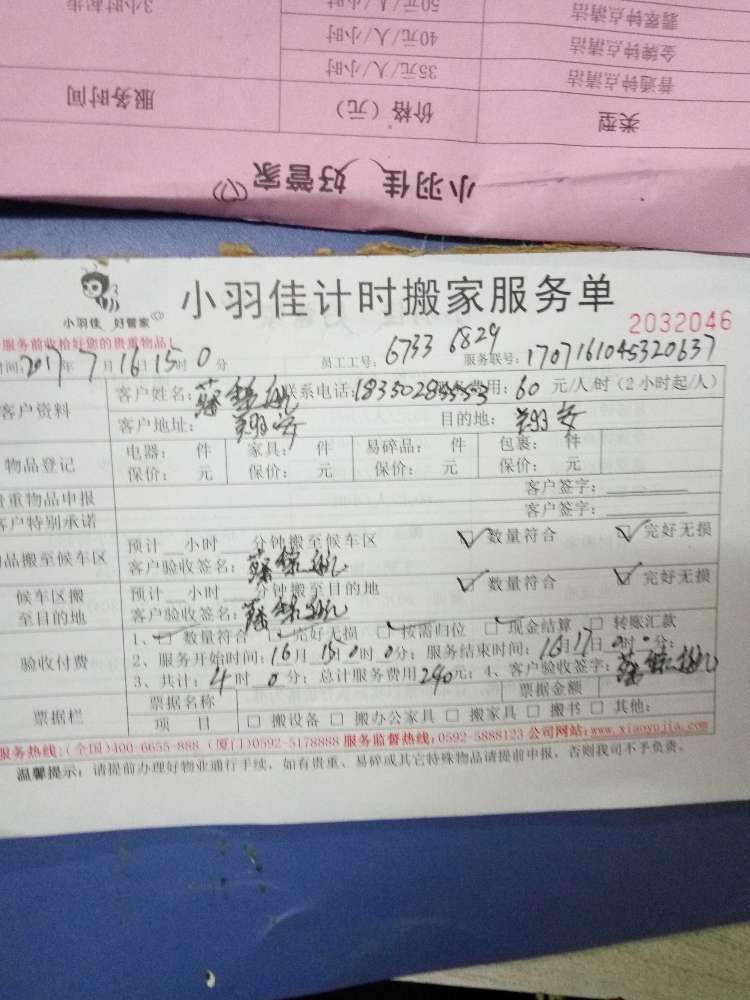 3小时起步 50元/人/小时 翡翠钟点清洁
40元/人/小时 金牌钟点清洁
35元/人/小时 普通钟点清洁
服务时间 价格（元） 类型
小羽佳 好管家
小羽佳 好管家
小羽佳计时搬家服务单
2032046
服务前收拾好您的贵重物品!
时间:2017年7月16日15时0分 员工工号: 6733 6829 服务联号: 1707161045320637
客户资料 客户姓名: 联系电话: 18350285553 费用: 60 元/人/时 (2小时起/人)
客户地址: 翔安 目的地: 翔安
物品登记 电器: 件 家具: 件 易碎品: 件 包裹: 件
保价: 元 保价: 元 保价: 元 保价: 元
贵重物品申报 客户签字:
客户特别承诺 客户签字:
物品搬至候车区 预计__小时__分钟搬至候车区 数量符合 完好无损
客户验收签名:
候车区搬至目的地 预计__小时__分钟搬至目的地 数量符合 完好无损
客户验收签名:
验收付费 1、 数量符合 完好无损 按需归位 现金结算 转账汇款
2、服务开始时间: 16月 15时0分; 服务结束时间: 16月17日 时0分;
3、共计: 4时0分; 总计服务费用240元; 4、客户验收签字:
票据栏 票据名称 票据金额
项 目 搬设备 搬办公家具 搬家具 搬书 其他:
服务热线:(全国)400-6655-888 (厦门)0592-5178888 服务监督热线:0592-5888123 公司网站:www.xiaoyujia.com
温馨提示: 请提前办理好物业通行手续, 如有贵重、易碎或其它特殊物品请提前申报, 否则我司不予负责。